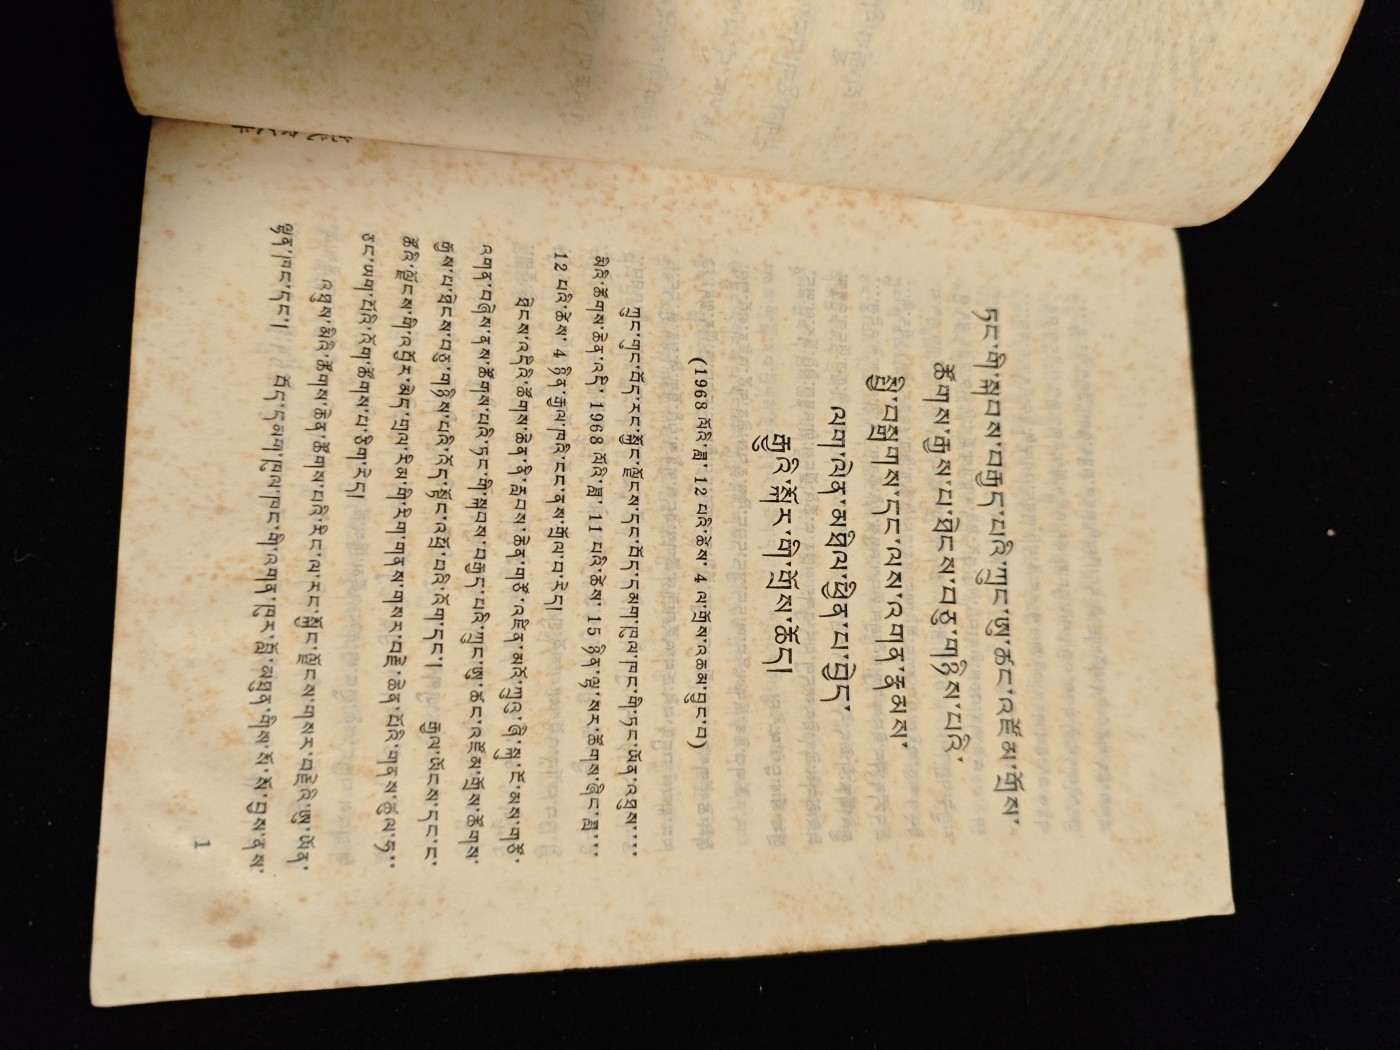 ཏང་གི་སྐབས་བརྒྱད་པའི་ཀྲུང་ཨུ་ཚང་འཛོམ་གྲོས་
ཚོགས་རྒྱས་པ་ཐེངས་བཅུ་གཉིས་པའི་
སྤྱི་བསྒྲགས་དང་ལས་འགན་རྣམས་
ལག་ལེན་མཐིལ་ཕྱིན་པ་བྱེད་
རྒྱུའི་སྐོར་གྱི་གྲོས་ཆོད།
(1968 ལོའི་ཟླ་ 12 པའི་ཚེས་ 4 ལ་གྲོས་འཆམ་བྱུང་བ)
ཀྲུང་ཀུང་བོད་རང་སྐྱོང་ལྗོངས་དང་བོད་དམག་ཁུལ་ཁང་གི་ཏང་ཡོན་འཐུས་
མིའི་ཚོགས་ཆེན་འདི་ 1968 ལོའི་ཟླ་ 11 པའི་ཚེས་ 15 ཉིན་ལྷ་སར་ཚོགས་ཞིང་ཟླ་
12 པའི་ཚེས་ 4 ཉིན་རྒྱལ་ཁའི་ངང་ནས་གྲོལ་བ་རེད།
ཐེངས་འདིའི་ཚོགས་ཆེན་ནི་རླབས་ཆེན་གཙོ་འཛིན་མའོ་ཀྲུའུ་ཞི་སྐུ་ངོ་མས་གཙོ་
འགན་བཞེས་ནས་ཚོགས་པའི་ཏང་གི་སྐབས་བརྒྱད་པའི་ཀྲུང་ཨུ་ཚང་འཛོམ་གྲོས་ཚོགས་
རྒྱས་པ་ཐེངས་བཅུ་གཉིས་པའི་འོད་སྟོང་འཕྲོ་བའི་འོག་དང་། རྒྱལ་ཡོངས་དང་ང་
ཚོའི་ལྗོངས་ཀྱི་འབྱོར་མེད་གྲལ་རིམ་གྱི་རིག་གནས་གསར་བརྗེ་ཆེན་པོའི་གནས་ཚུལ་ཧ་
ཅང་ཡག་པོའི་འོག་ཚོགས་པ་ཞིག་རེད།
འཐུས་མིའི་ཚོགས་ཆེན་ཚོགས་པའི་རིང་ལ་རང་སྐྱོང་ལྗོངས་གསར་བརྗེའི་ཨུ་ཡོན་
ལྷན་ཁང་དང་། བོད་དམག་ཁུལ་ཁང་གི་འགན་ཁུར་བློ་མཐུན་གྱིས་སོ་སོ་བྱས་ནས་
1